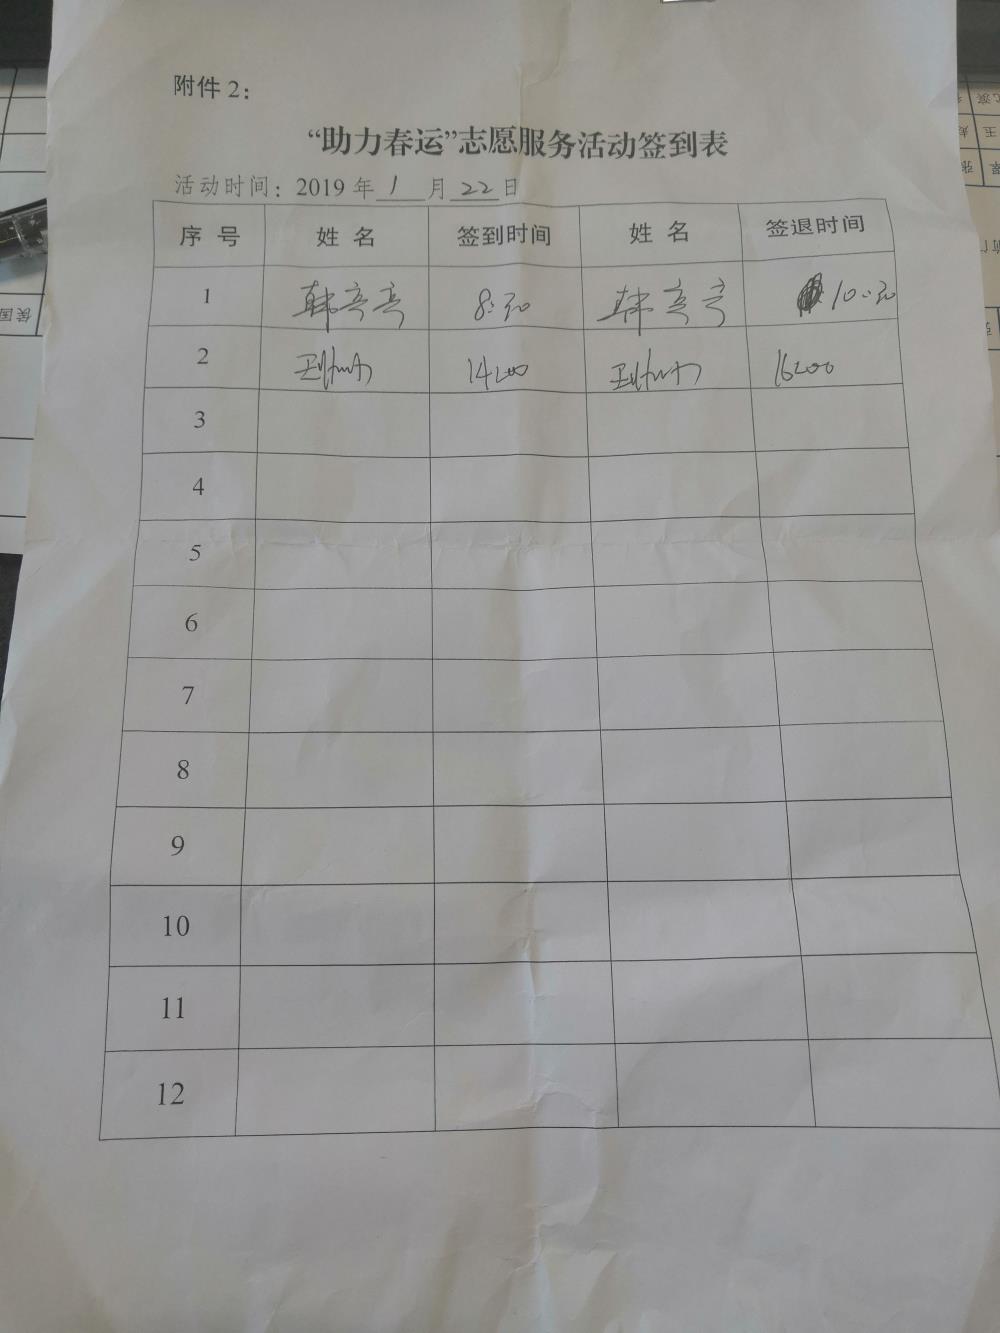 附件 2：
“助力春运”志愿服务活动签到表
活动时间：2019 年 1 月 22 日
序 号 姓 名 签到时间 姓 名 签退时间
1 韩亮亮 8:30 韩亮亮 10:30
2 14:00 16:00
3
4
5
6
7
8
9
10
11
12
侯国